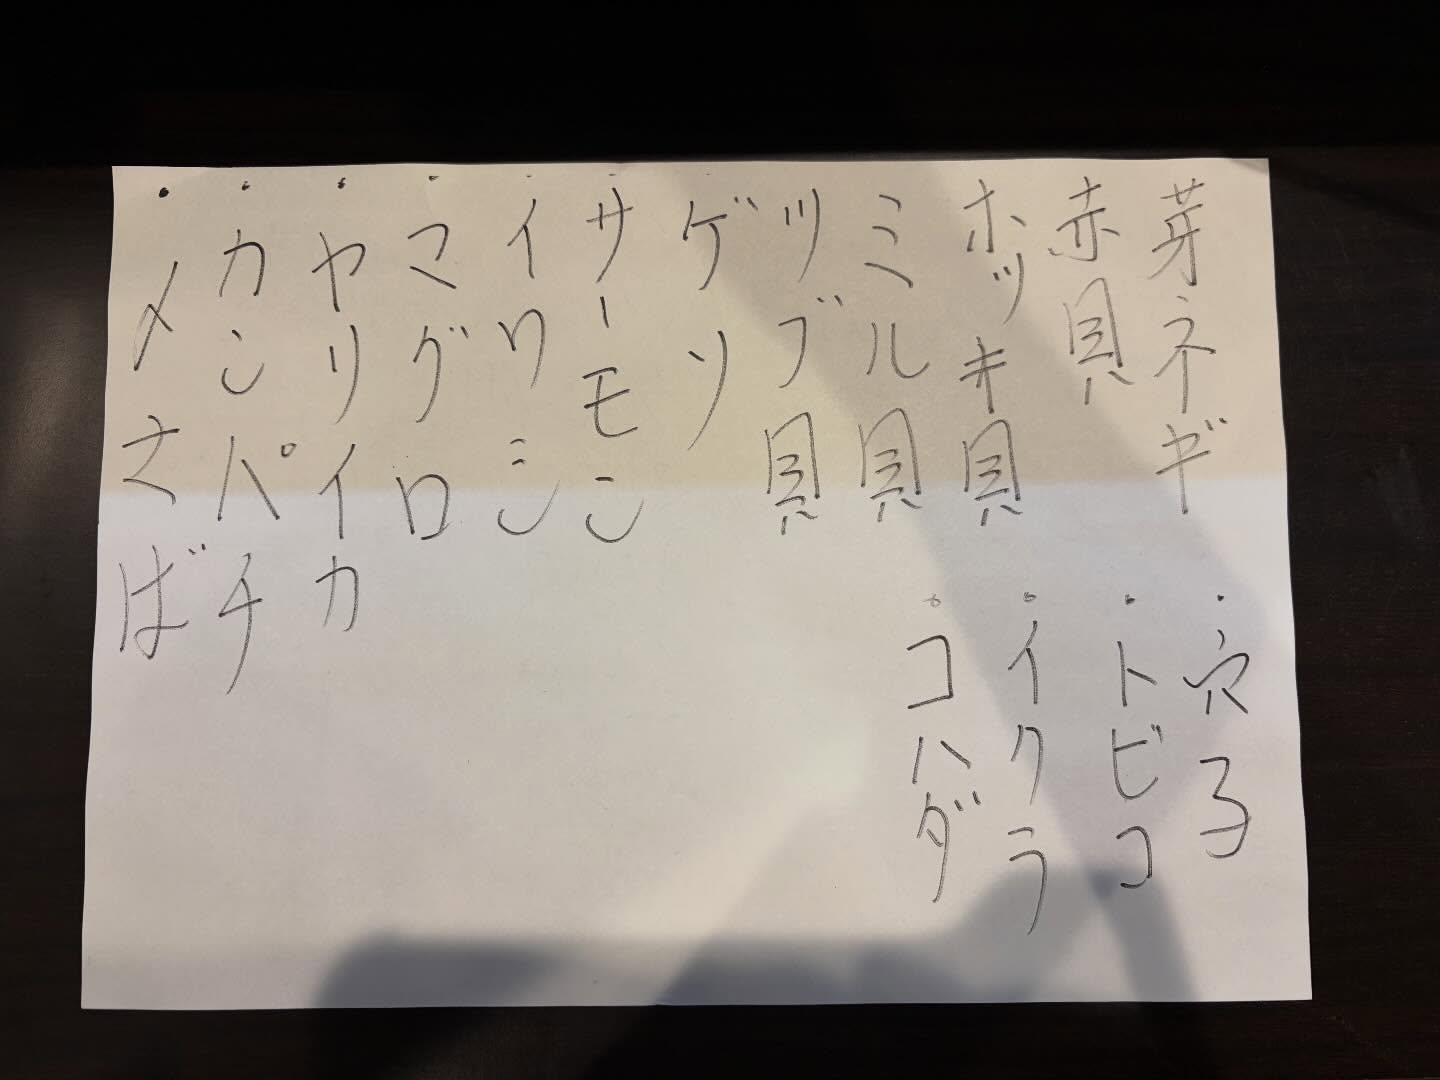 芽ネギ
赤貝
ホッキ貝
ミル貝
ツブ貝
ゲソ
・サーモン
・イワシ
・マグロ
・ヤリイカ
・カンパチ
・〆さば
・穴子
・トビコ
・イクラ
・コハダ